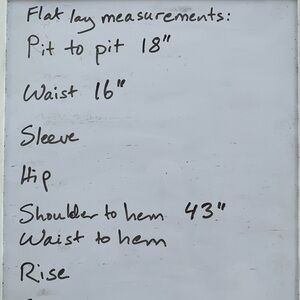 Flat lay measurements:
Pit to pit 18"
Waist 16"
Sleeve
Hip
Shoulder to hem 43"
Waist to hem
Rise